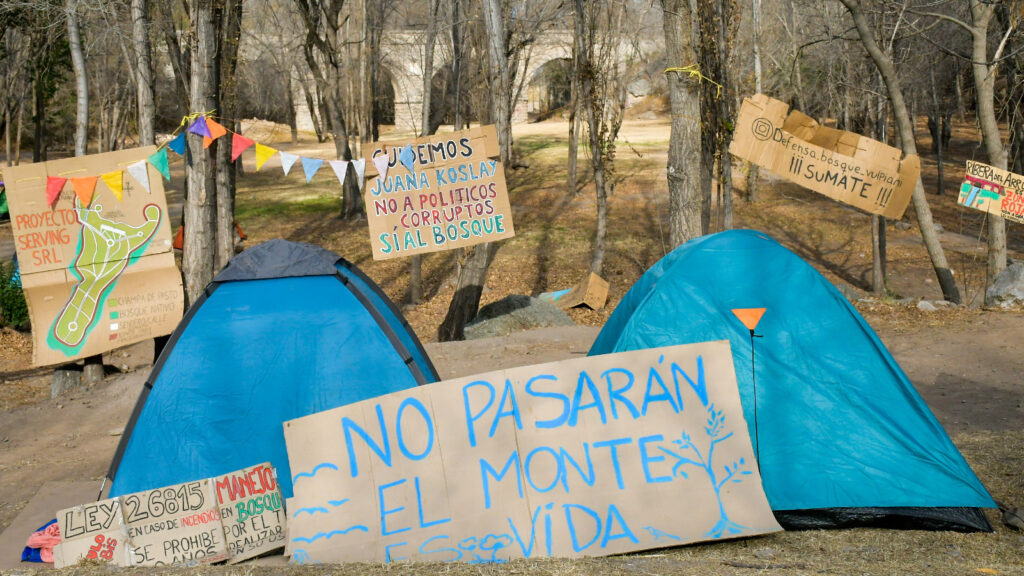 PROYECTO
SERVING
SRL
CHAMPA DE PASTO
BOSQUE NATIVO
CUIDEMOS
JUANA KOSLAY
NO A POLITICOS
CORRUPTOS
SÍ AL BOSQUE
@Defensa.bosque.vulpiani
¡¡¡ SUMATE !!!
RIBERA DEL
NO PASARÁN
EL MONTE
ES VIDA
LEY 26815
EN CASO DE INCENDIOS
SE PROHIBE
AÑOS
MANEJO
EN BOSQUE
POR EL
REALIZAR